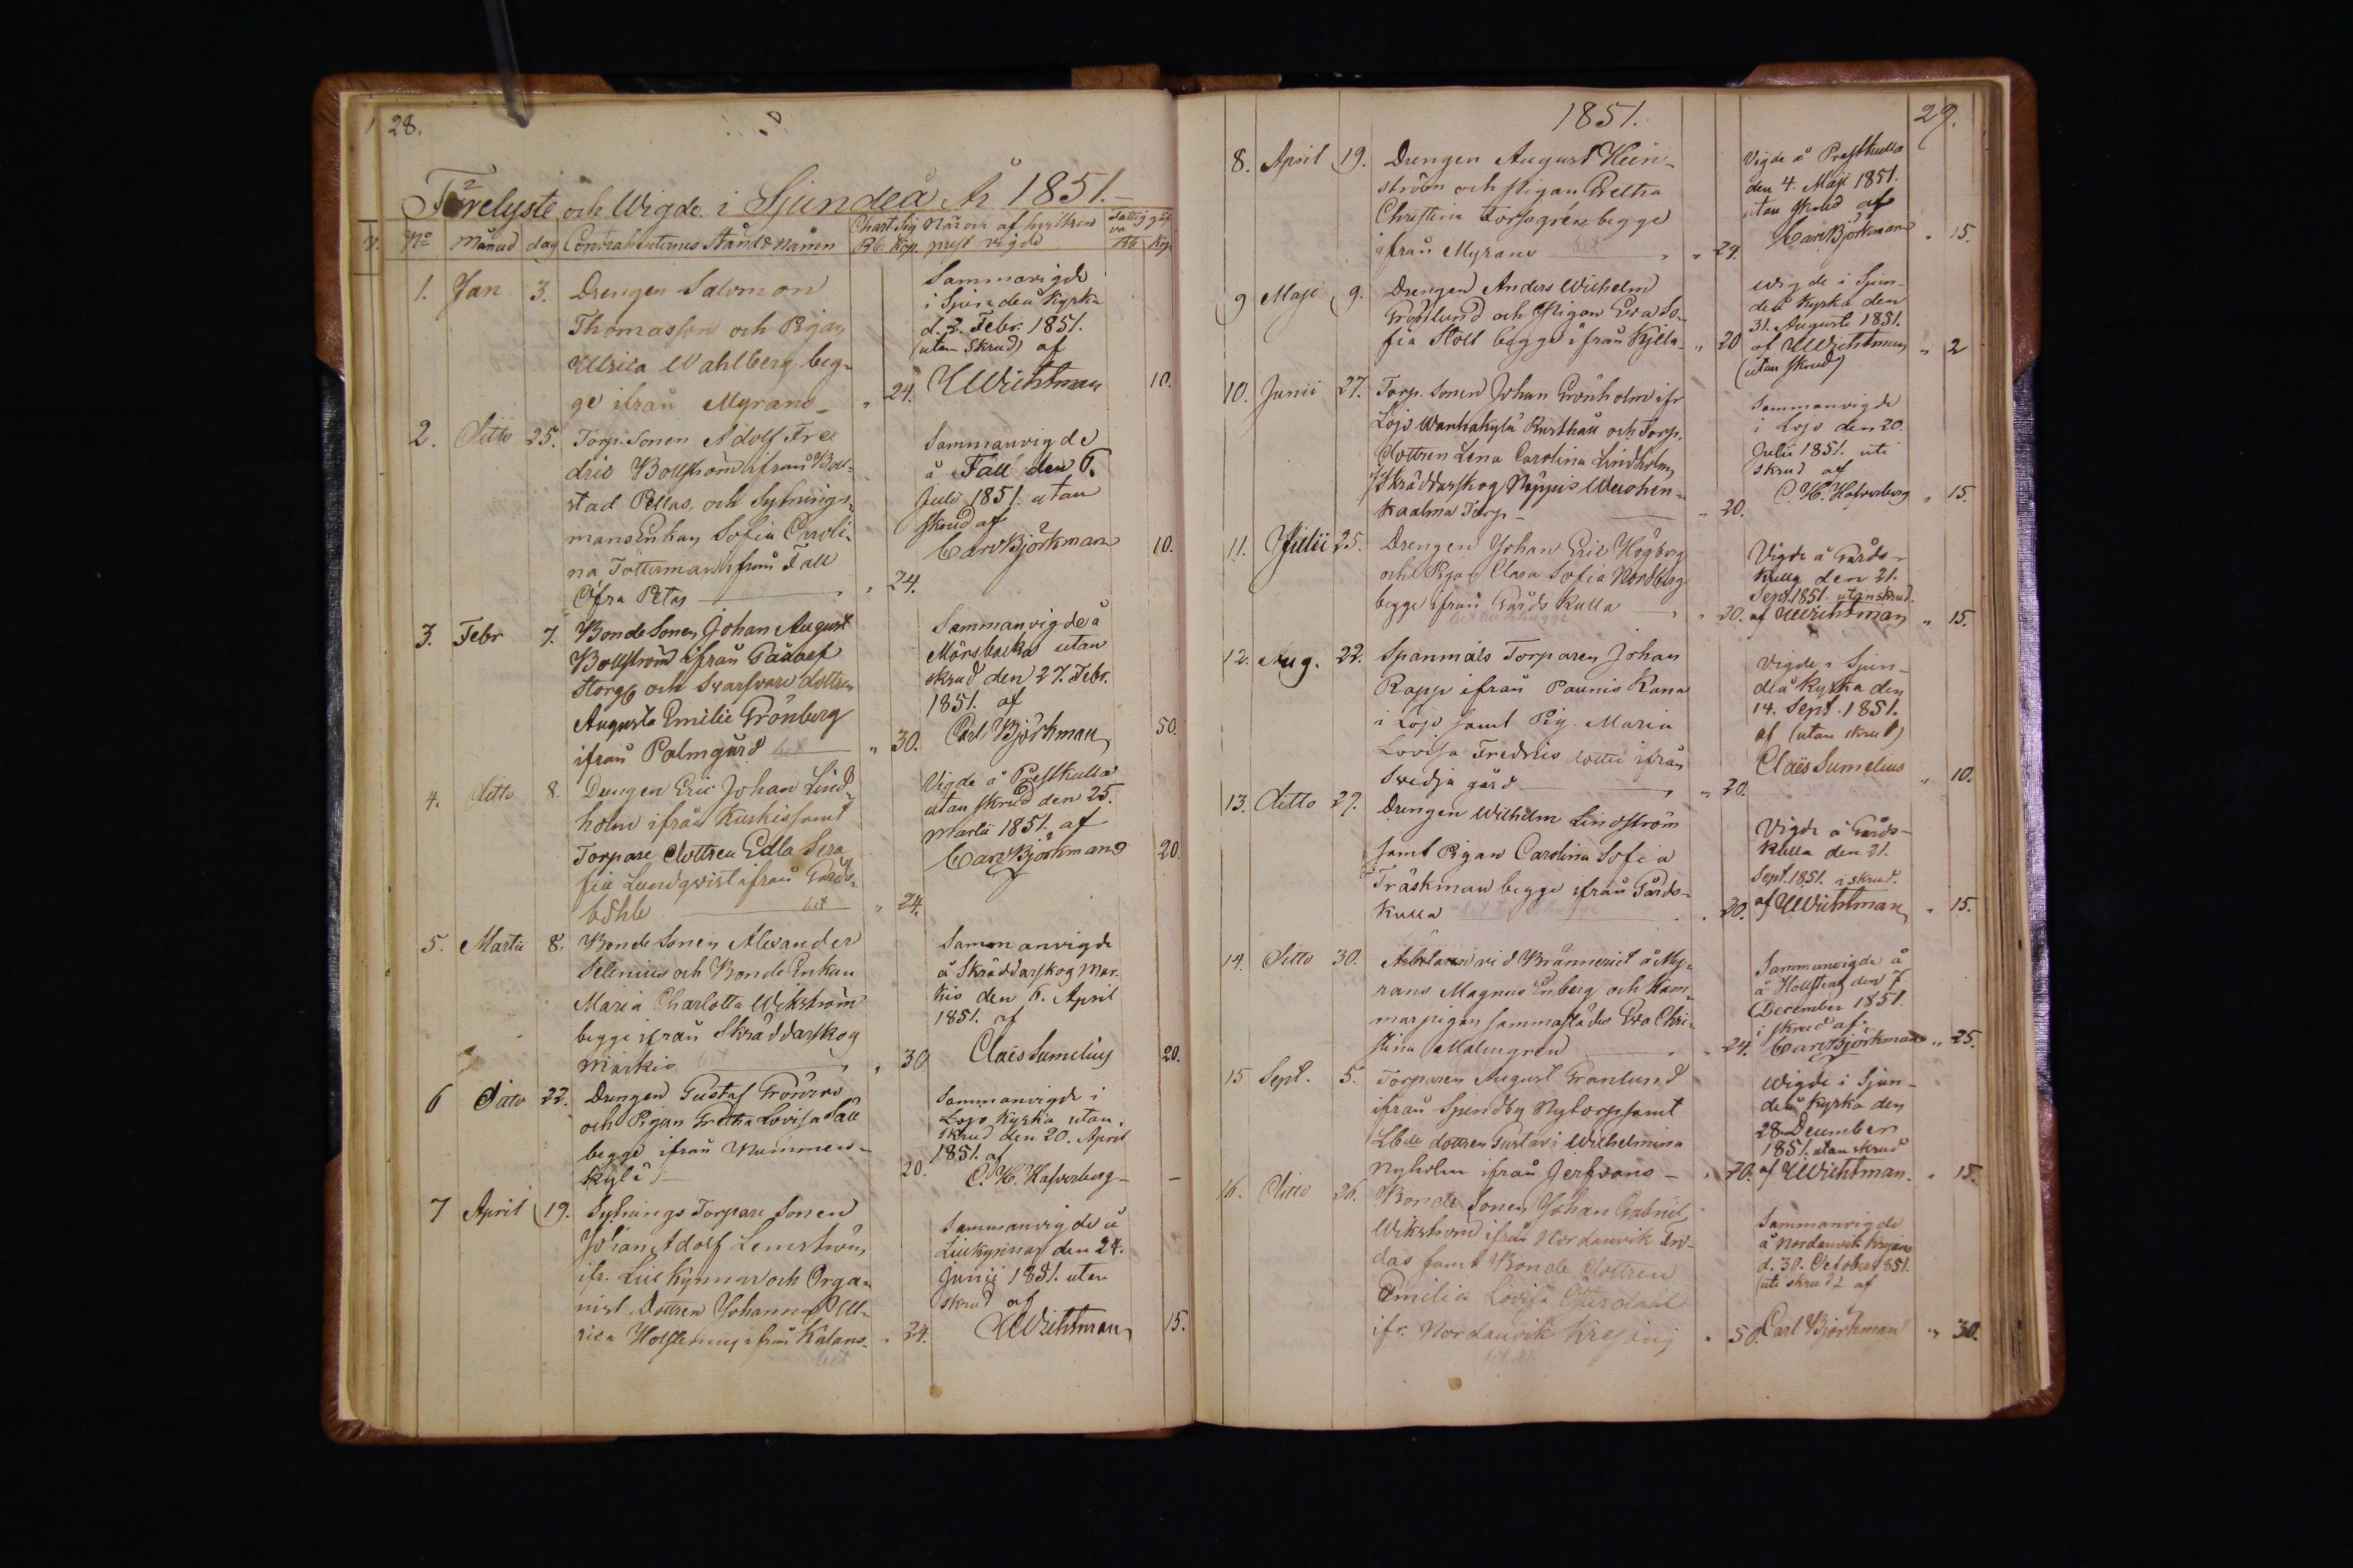 28.
Förelyste och Wigde i Sjundeå År 1851.
No Månad dag Contrahenternes Stånd & namn Chart. Sig. När och af hvilken prest vigde Fattig gåfva
Rb. Kop. Rb Kop
1. Jan 3. Drengen Salomon
Thomasson och Pigan
Ullrica Wahlberg beg-
ge ifrån Myrans „ 24.
Sammanvigde
i Sjundeå Kyrka
d. 2. Febr. 1851.
(utan Skrud) af
Wichtman 10.
2. Ditto 25. Torp. Sonen Adolf Fre
dric Bollström ifrån Boll-
stad Pellas, och Sytnings-
mans Enkan Sofia Caroli-
na Tötterman ifrån Fall
Öfra Petas „ 24.
Sammanvigde
å Fall den 6.
Julii 1851. utan
skrud af
Carl Björkman 10.
3. Febr 7. Bonde Sonen Johan August
Bollström ifrån
och Svarfvare dottren
Augusta Emilie Grönberg
ifrån Palmgård „ 30.
Sammanvigde å
Mörsbacka utan
skrud den 27. Febr.
1851. af
Carl Björkman 50.
4. ditto 8. Drengen Eric Johan Lind-
holm ifrån Kuskis samt
Torpare dottren Edla Sera
fia Lundqvist ifrån Gårds-
böhle bet „ 24.
Vigde å Prestkulla
utan skrud den 25.
Martii 1851. af
Carl Björkman 20.
5. Martii 8. Bonde Sonen Alexander
Selenius och Bonde Enkan
Maria Charlotta Wikström
begge ifrån Skräddarskog
Markis „ 30
Sammanvigde
å Skräddarskog Mar-
kis den 6. April
1851. af
Claës Sumelius 20.
6 Ditto 22. Drengen Gustaf Grönroos
och Pigan Gretha Lovisa Säll
begge ifrån Nummen-
kylä 20.
Sammanvigde i
Lojo Kyrka utan
skrud den 20. April
1851. af
C. H. Hafverberg –
7 April 19. Sytnings Torpare Sonen
Johan Adolf Lemström
ifr. Lill Kynnar och Orga-
nist Dottren Johanna Ull-
rica Holstening ifrån Kalans „ 24.
bet
Sammanvigde å
Lillkynnar den 24.
Junii 1851. utan
skrud af
Wichtman 15.
1851. 29.
8. April 19. Drengen August Hein-
ström och Pigan Gretha
Christina Forsgrén begge
ifrån Myrans „ 24.
Vigde å Prestkulla
den 4. Maji 1851.
utan skrud af
Carl Björkman „ 15.
9 Maji 9. Drengen Anders Wilhelm
Grönlund och Pigan Eva So-
fia Stoll begge ifrån Kyla „ 20
Wigde i Sjun-
deå Kyrka den
31. Augusti 1851.
af Wichtman „ 2
(utan skrud)
10. Junii 27. Torp. Sonen Johan Grönholm ifr
Lojo Wanhakylä Rusthåll och Torp.
dottren Lena Carolina Lindholm
Skräddarskog Nappis Wuohen-
kaalma Torp – „ 20.
Sammanvigde
i Lojo den 20.
Julii 1851. uti
skrud af
C. H. Hafverberg „ 15.
11. Julii 25. Drengen Johan Eric Högberg
och Pigan Clara Sofia Nordberg
begge ifrån Gårdskulla „ 20.
Vigde å Gårds-
kulla den 21.
Sept. 1851. utan skrud.
af Wichtman „ 15.
12. Aug. 22. Spanmåls Torparen Johan
Rapp ifrån Paunis Kana
i Lojo samt Pig. Maria
Lovisa Fredrics dotter ifrån
Svidja gård „ 20.
Vigde i Sjun-
deå Kyrka den
14. Sept. 1851.
af (utan skrud)
Claës Sumelius „ 10.
13. ditto 29. Drengen Wilhelm Lindström
samt Pigan Carolina Sofia
Träskman begge ifrån Gårds-
kulla „ 20.
Vigde å Gårds-
kulla den 21.
Sept. 1851. i skrud.
af Wichtman „ 15.
14. ditto 30. Arbetaren vid Bränneriet å My-
rans Magnus Enberg och Kam-
marpigan sammastädes Eva Chri-
stina Malmgren „ 24.
Sammanvigde å
å Hollstens den 7
December 1851.
i skrud af.
Carl Björkman „ 25.
15 Sept. 5. Torparen August Granlund
ifrån Spindby Nytorp samt
dottren Gustavi Wilhelmina
Nyholm ifrån Jerfvans – „ 70.
Wigde i Sjun-
deå Kyrka den
28 December
1851. utan skrud
af Wichtman. „ 15.
16. Ditto 26. Bonde Sonen Johan Gabriel
Wikström ifrån Nordanvik Fro-
das samt Bonde dottren
Emilia Lovisa Österdahl
ifr. Nordanvik „ 50.
Sammanvigde
å Nordanvik
d. 30. October 1851.
uti skrud af
Carl Björkman „ 30.